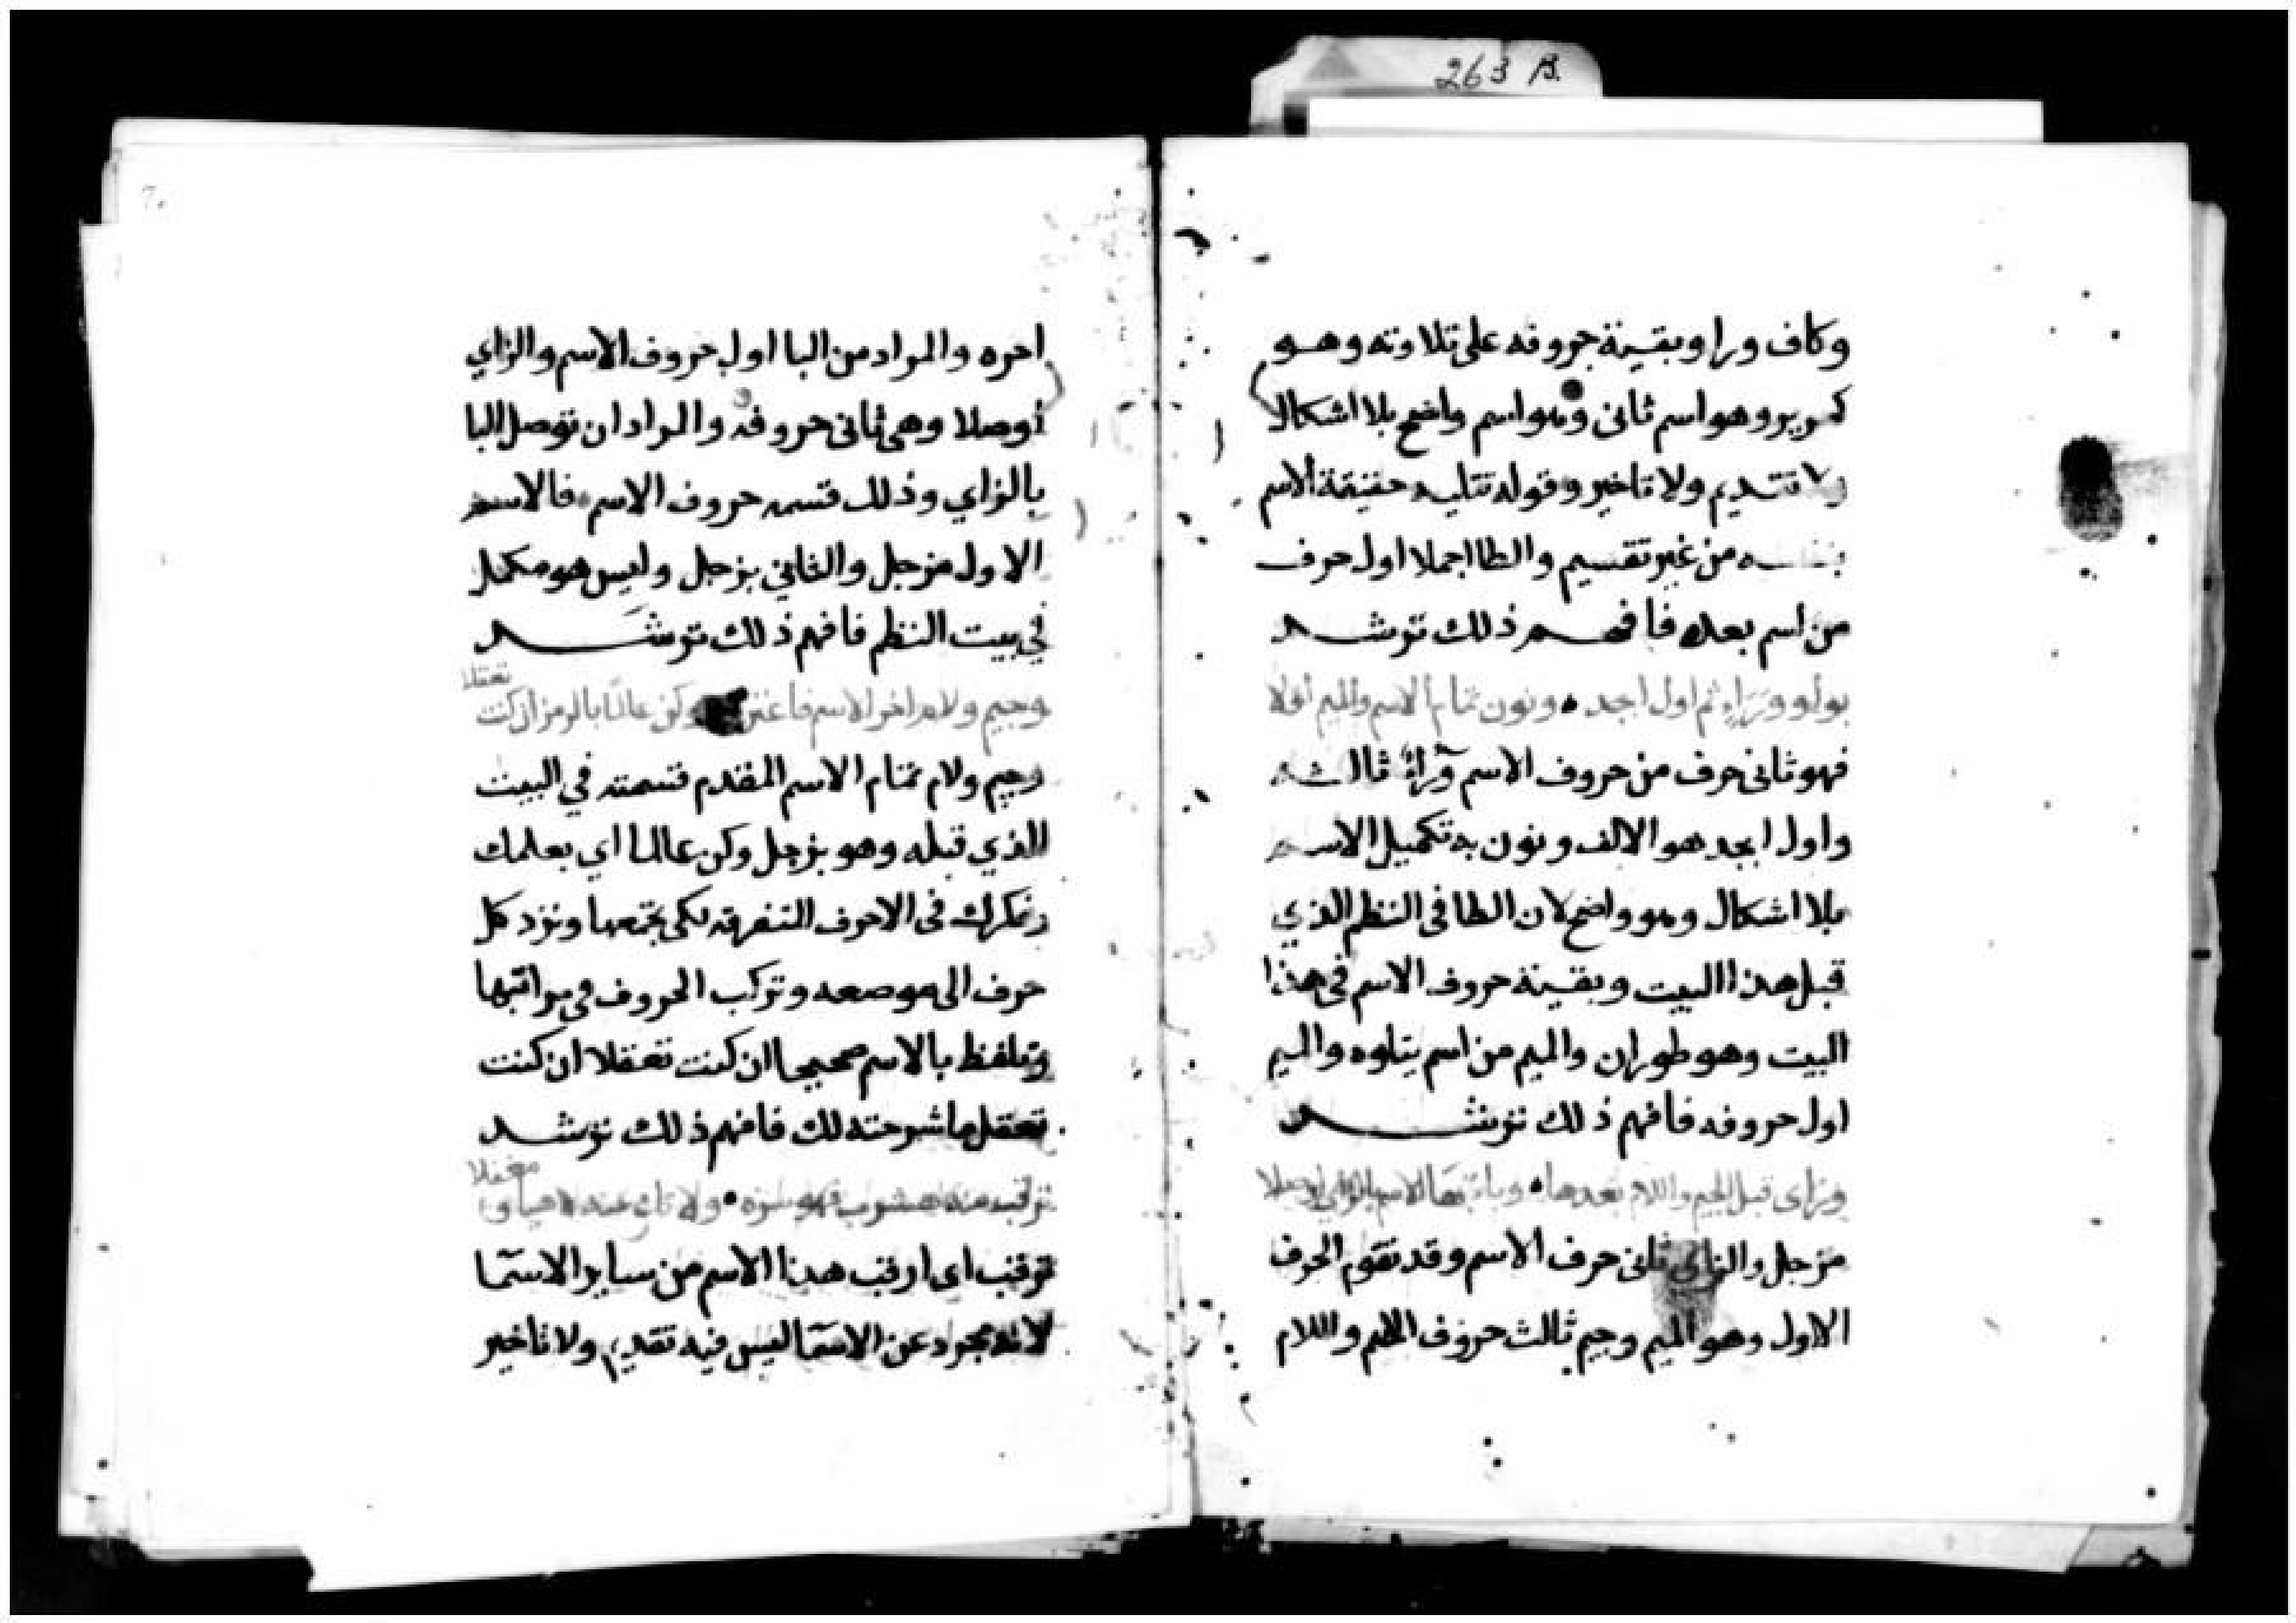 263 B.
وكاف ورا وبقينة حروفه على تلاوته وهو
كرير وهو اسم ثانى وهو اسم واضح بلا اشكال
ولا تقديم ولا تاخير وقوله تتليه حقيقة الاسم
من غير تقسيم والطا اجملا اول حرف
من اسم بعده فافهم ذلك ترشد
بواو وراء ثم اول ابجد ونون تمام الاسم والميم اولا
فهو ثانى حرف من حروف الاسم وراء ثالثه
واول ابجد هو الالف ونون به تكميل الاسم
بلا اشكال وهو واضح لان الطا فى النظم الذي
قبل هذا البيت وبقينة حروف الاسم فى هذا
البيت وهو طوران والميم من اسم يتلوه والميم
اول حروفه فافهم ذلك ترشد
وزاى قبل الجيم واللام بعدها وباء بها الاسم بالزاي اوصلا
مزجل والزاي ثانى حرف الاسم وقد تقوم الحرف
الاول وهو الميم وجيم ثالث حروف واللام
احره والمراد من البا اول حروف الاسم والزاي
أوصلا وهى ثانى حروفه والمراد ان توصل البا
بالزاي وذلك قسمه حروف الاسم فالاسم
الاول مزجل والثاني بزجل وليس هو مكمل
في بيت النظم فافهم ذلك ترشد
وجيم ولام اخر الاسم وكن عالما بالرمز ان كنت تعقلا
وجيم ولام تمام الاسم المقدم قسمته في البيت
الذي قبله وهو بزجل وكن عالما اي بعلمك
وفكرك فى الاحرف المتفرقه لكى تجمعها وترد كل
حرف الى موضعه وتركب الحروف في مراتبها
وتلفظ بالاسم صحيحا ان كنت تعقلا ان كنت
تعقل ما شرحته لك فافهم ذلك ترشد
ترقب ولا
ترقب اى ارقب هذا الاسم من ساير الاسما
لانه مجرد عن الاسما ليس فيه تقديم ولا تاخير